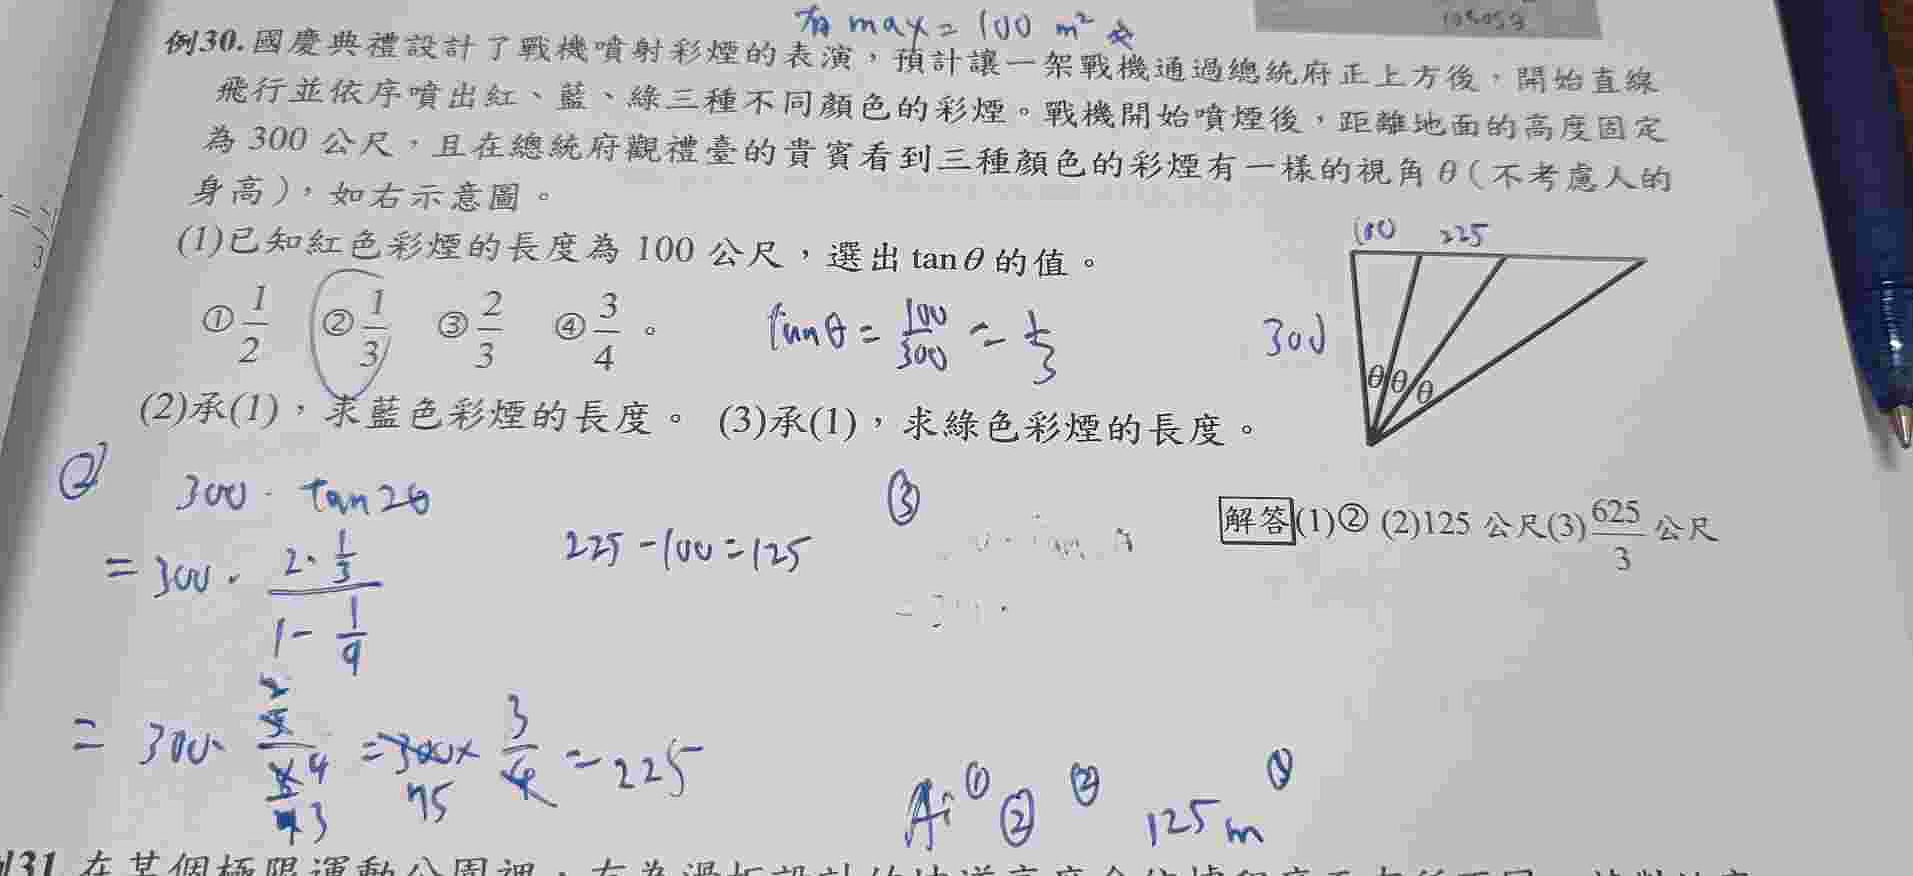 有 max = 100 m²
例30. 國慶典禮設計了戰機噴射彩煙的表演，預計讓一架戰機通過總統府正上方後，開始直線
飛行並依序噴出紅、藍、綠三種不同顏色的彩煙。戰機開始噴煙後，距離地面的高度固定
為 300 公尺，且在總統府觀禮臺的貴賓看到三種顏色的彩煙有一樣的視角 θ（不考慮人的
身高），如右示意圖。
(1)已知紅色彩煙的長度為 100 公尺，選出 tanθ 的值。
① 1/2 ② 1/3 ③ 2/3 ④ 3/4 。
tanθ = 100/300 = 1/3
100 225
300
θ θ θ
(2)承(1)，求藍色彩煙的長度。 (3)承(1)，求綠色彩煙的長度。
② 300 · tan2θ
= 300 · (2 · 1/3)/(1 - 1/9)
225 - 100 = 125
③
解答 (1)② (2)125 公尺(3) 625/3 公尺
= 300 × 3/4 = 225
75
A: ① ② ② 125 m ③
例31. 在某個極限運動公園裡，